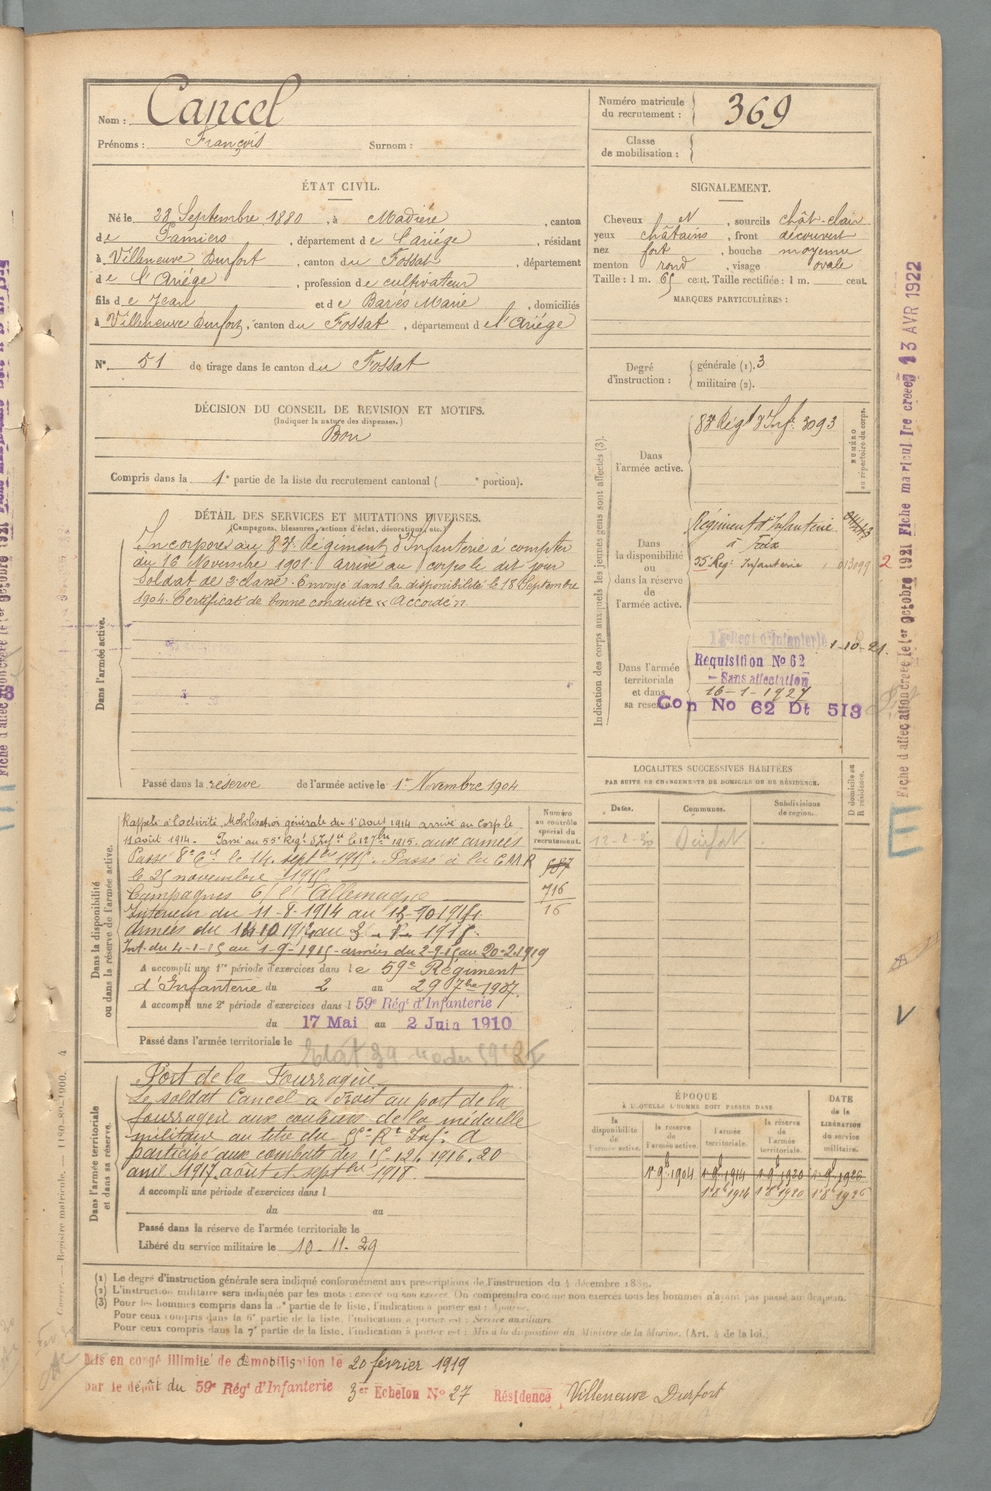 Nom : Cancel
Prénoms : François Surnom :
Numéro matricule du recrutement : 369
Classe de mobilisation :
ÉTAT CIVIL.
Né le 23 Septembre 1880, à Madière, canton
de Pamiers, département de l'Ariége, résidant
à Villeneuve Durfort, canton du Fossat, département
de l'Ariége, profession de cultivateur
fils de Jean et de Barés Marie, domiciliés
à Villeneuve Durfort, canton du Fossat, département de l'Ariége
N° 51 de tirage dans le canton du Fossat
SIGNALEMENT.
Cheveux et, sourcils chât-clair
yeux châtains, front découvert
nez fort, bouche moyenne
menton rond, visage ovale
Taille : 1 m. 65 cent. Taille rectifiée : 1 m. cent.
MARQUES PARTICULIÈRES :
Degré d'instruction : générale (1). 3
militaire (2).
DÉCISION DU CONSEIL DE REVISION ET MOTIFS.
(Indiquer la nature des dispenses.)
Bon
Compris dans la 1e partie de la liste du recrutement cantonal ( e portion).
DÉTAIL DES SERVICES ET MUTATIONS DIVERSES.
(Campagnes, blessures, actions d'éclat, décorations, etc.)
Dans l'armée active.
Incorporé au 83e Régiment d'Infanterie à compter
du 16 Novembre 1901. arrivé au corps le dit jour
Soldat de 2e classe. Envoyé dans la disponibilité le 18 Septembre
1904. Certificat de bonne conduite « Accordé ».
Passé dans la réserve de l'armée active le 1er Novembre 1904
Indication des corps auxquels les jeunes gens sont affectés (3).
NUMÉRO au répertoire du corps.
Dans l'armée active.
83e Régt d'Inf. 3093
Dans la disponibilité ou dans la réserve de l'armée active.
Régiment d'Infanterie
à Foix
Infanterie
Dans l'armée territoriale et dans sa réserve.
Régt d'Infanterie 1-10-21.
Réquisition No 62
- Sans affectation
16-1-1927
Con No 62 Dt 513
Fiche d'affectation créée le 1er octobre 1921 Fiche matricul Ire créée 13 AVR 1922
LOCALITÉS SUCCESSIVES HABITÉES
PAR SUITE DE CHANGEMENTS DE DOMICILE OU DE RÉSIDENCE.
Dates. Communes. Subdivisions de région. D domicile ou R résidence.
Durfort
Dans la disponibilité ou dans la réserve de l'armée active.
Numéro au contrôle spécial du recrutement.
Rappelé à l'activité. Mobilisation générale du 1er août 1914 arrivé au Corps le
11 août 1914. Passé au Régt d'Infie le 1915. aux armées
Passé 8e Cie le 14 septbre 1915. Passé à la C.M.R
le 25 novembre 1915
716
16
Campagnes c/ l'Allemagne
Intérieur du 11-8-1914 au
armées du
Int. du 4-1-15 au 1-9-1915 - armées du 2-9-15 au 20-2-1919
A accompli une 1re période d'exercices dans le 59e Régiment
d'Infanterie du 2 au 29 7bre 1907.
A accompli une 2e période d'exercices dans l 59e Régt d'Infanterie
du 17 Mai au 2 Juin 1910
Passé dans l'armée territoriale le
Dans l'armée territoriale et dans sa réserve.
Port de la Fourragère
Le soldat Cancel a droit au port de la
fourragère aux couleurs de la médaille
militaire au titre du Rt Inf. A
participé aux combats des 15-12-1916. 20
avril 1917. août et septbre 1918.
A accompli une période d'exercices dans l
du au
Passé dans la réserve de l'armée territoriale le
Libéré du service militaire le 10-11-29
ÉPOQUE
À LAQUELLE L'HOMME DOIT PASSER DANS
la disponibilité de l'armée active. la réserve de l'armée active. l'armée territoriale. la réserve de l'armée territoriale.
DATE de la LIBÉRATION du service militaire.
1er 9b 1904 1er 9b 1914 1er 9b 1920 1er 9b 1926
(1) Le degré d'instruction générale sera indiqué conformément aux prescriptions de l'instruction du 4 décembre 1889.
(2) L'instruction militaire sera indiquée par les mots : exercé ou non exercé. On comprendra comme non exercés tous les hommes n'ayant pas passé au drapeau.
(3) Pour les hommes compris dans la 5e partie de la liste, l'indication à porter est : Ajourné.
Pour ceux compris dans la 6e partie de la liste, l'indication à porter est : Service auxiliaire.
Pour ceux compris dans la 7e partie de la liste, l'indication à porter est : Mis à la disposition du Ministre de la Marine. (Art. 4 de la loi.)
Mis en congé illimité de démobilisation le 20 février 1919
par le dépôt du 59e Régt d'Infanterie 3er Echelon No 27 Résidence Villeneuve Durfort